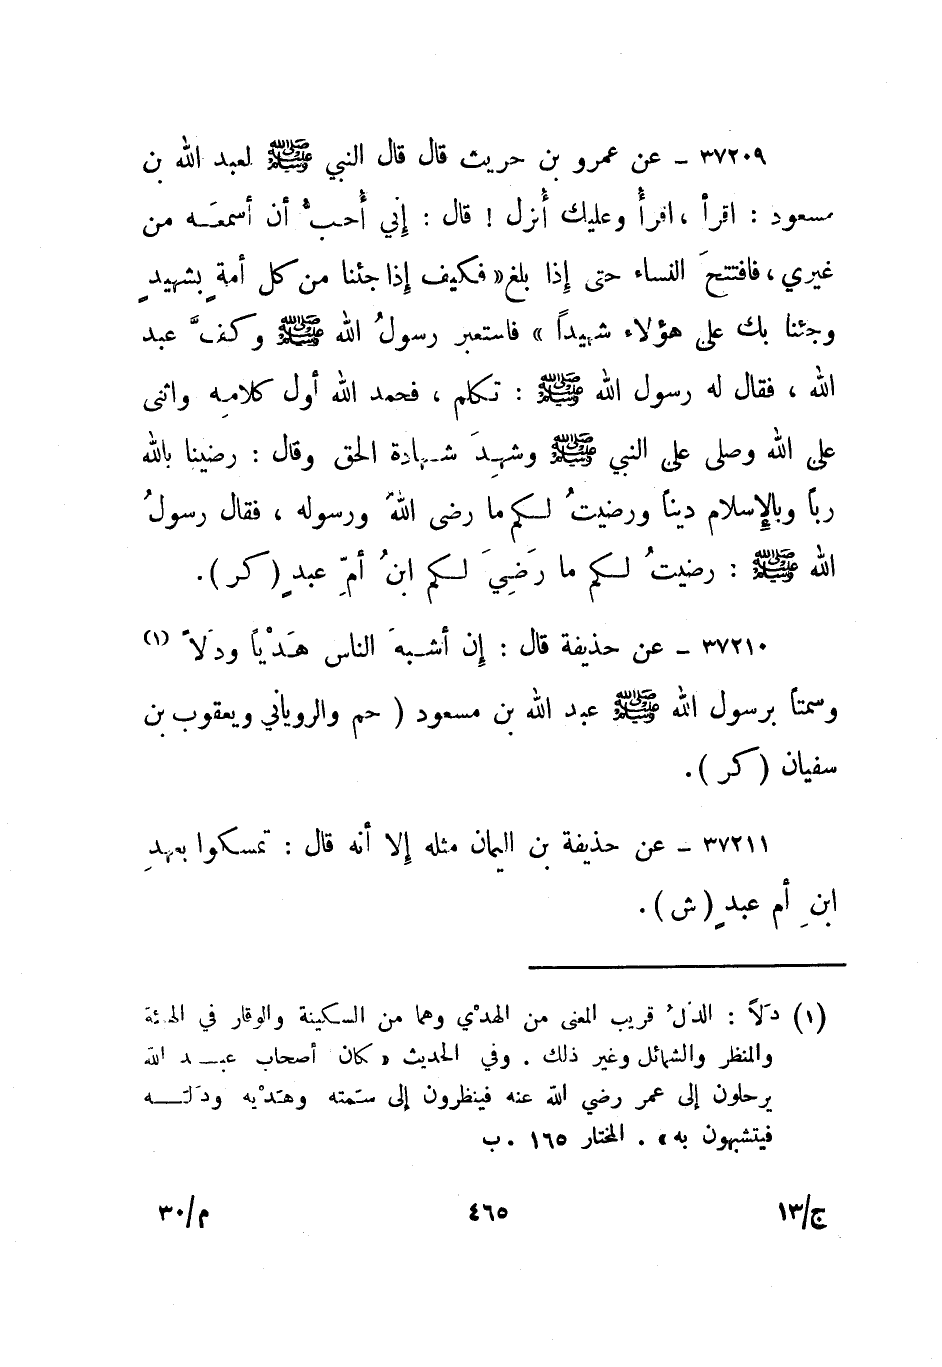 ٣٧٢٠٩ - عن عمرو بن حريث قال قال النبي ﷺ لعبد الله بن
مسعود : اقرأ ، اقرأُ وعليك أُنزل ! قال : إِني أُحبُّ أن أسمعَه من
غيري ، فافتتحَ النساء حتى إِذا بلغ « فكيف إِذا جئنا من كل أمةٍ بشهيدٍ
وجئنا بك على هؤلاء شهيداً » فاستعبر رسولُ الله ﷺ وكفَّ عبد
الله ، فقال له رسول الله ﷺ : تكلم ، فحمد الله أول كلامه واثنى
على الله وصلى على النبي ﷺ وشهِدَ شهادة الحق وقال : رضينا بالله
رباً وبالإِسلام ديناً ورضيتُ لكم ما رضى اللهُ ورسوله ، فقال رسولُ
الله ﷺ : رضيتُ لكم ما رَضِيَ لكم ابنُ أمِّ عبدٍ (كر) .
٣٧٢١٠ - عن حذيفة قال : إِن أشبهَ الناس هَدْياً ودَلاً (١)
وسمتاً برسول الله ﷺ عبد الله بن مسعود ( حم والروياني ويعقوب بن
سفيان (كر) .
٣٧٢١١ - عن حذيفة بن اليمان مثله إِلا أنه قال : تمسكوا بعهدِ
ابنِ أم عبدٍ (ش) .
(١) دَلاً : الدَلُ قريب المعنى من الهدْي وهما من السكينة والوقار في الهيئة
والمنظر والشمائل وغير ذلك . وفي الحديث « كان أصحاب عبد الله
يرحلون إلى عمر رضي الله عنه فينظرون إلى سَمته وهَدْيه ودَلِّه
فيتشبهون به » . المختار ١٦٥ . ب
ج/١٣ ٤٦٥ م/٣٠